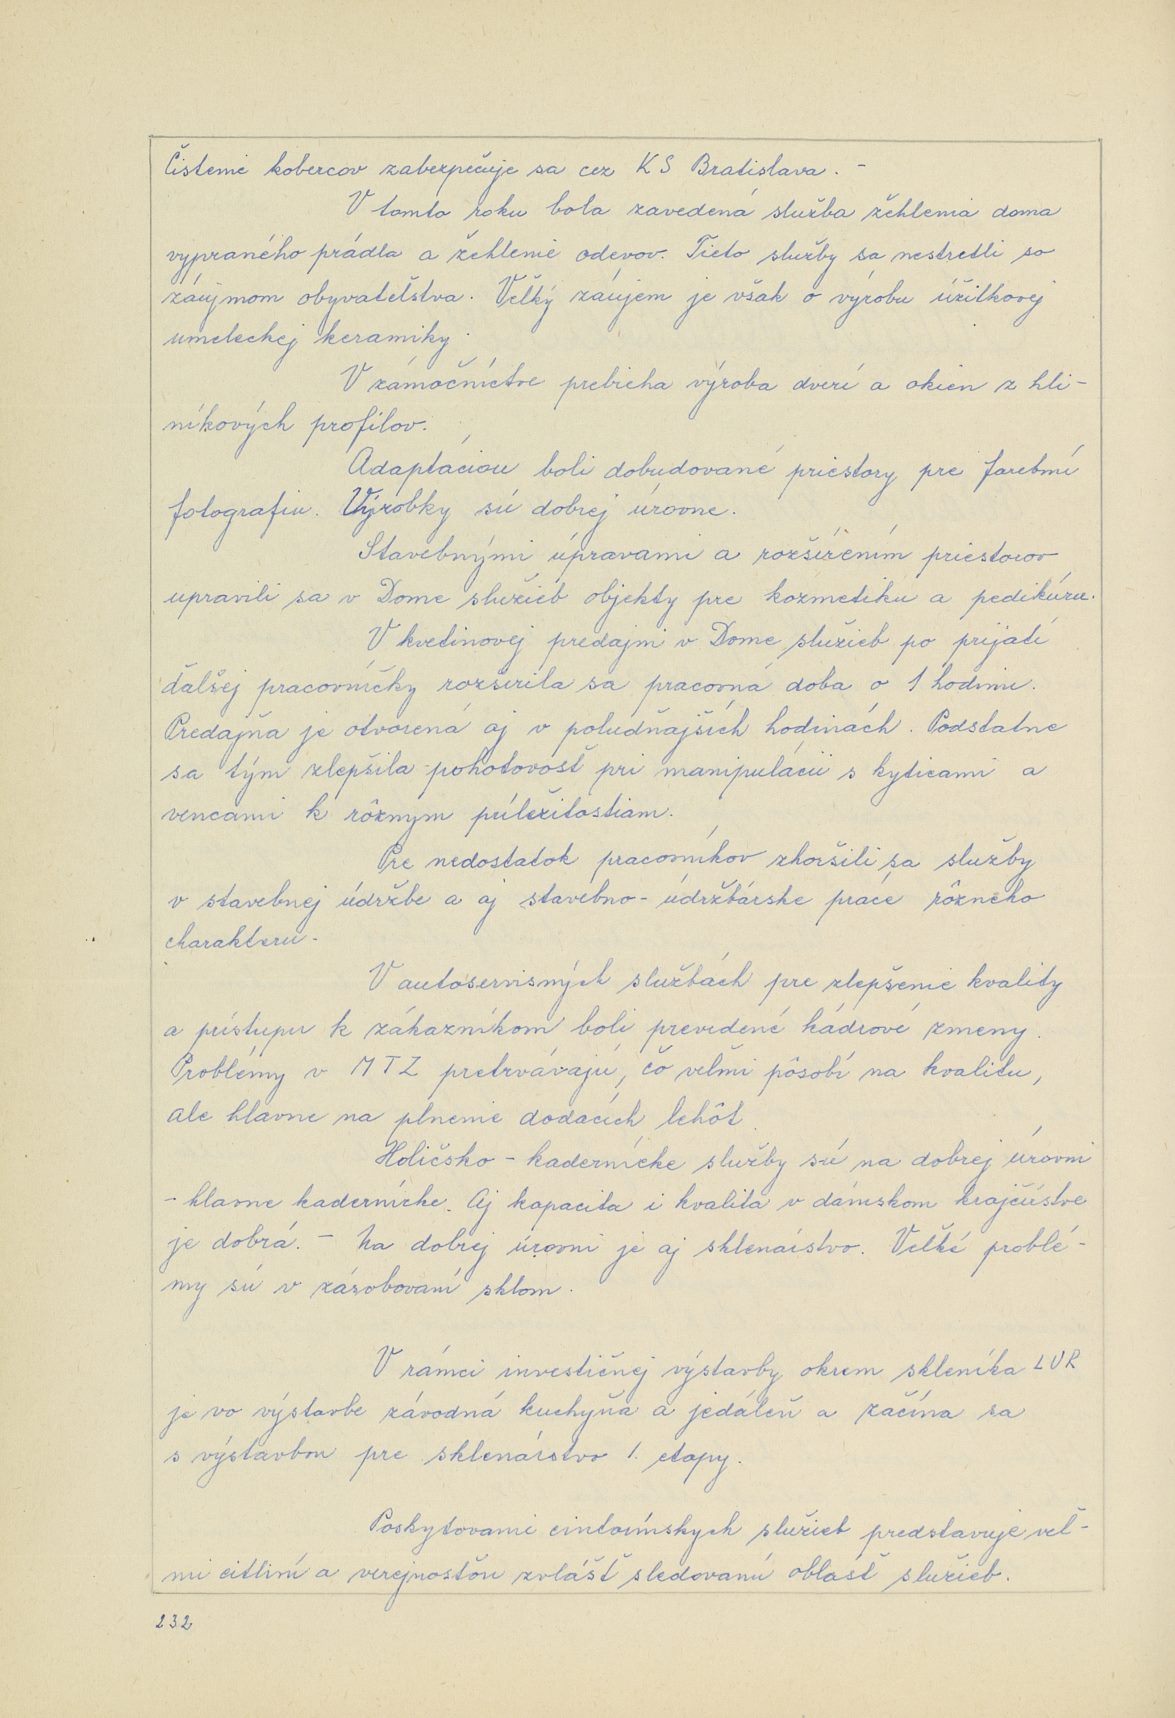 Čistenie kobercov zabezpečuje sa cez KS Bratislava. -
V tomto roku bola zavedená služba žehlenia doma
vypraného prádla a žehlenie odevov. Tieto služby sa nestretli so
záujmom obyvateľstva. Veľký záujem je však o výrobu úžitkovej
umeleckej keramiky.
V zámočníctve prebieha výroba dverí a okien z hli-
níkových profilov.
Adaptáciou boli dobudované priestory pre farebnú
fotografiu. Výrobky sú dobrej úrovne.
Stavebnými úpravami a rozšírením priestorov
upravili sa v Dome služieb objekty pre kozmetiku a pedikúru.
V kvetinovej predajni v Dome služieb po prijatí
ďalšej pracovníčky rozšírila sa pracovná doba o 1 hodinu.
Predajňa je otvorená aj v poludňajších hodinách. Podstatne
sa tým zlepšila pohotovosť pri manipulácii s kyticami a
vencami k rôznym príležitostiam.
Pre nedostatok pracovníkov zhoršili sa služby
v stavebnej údržbe a aj stavebno-údržbárske práce rôzneho
charakteru.
V autoservisných službách pre zlepšenie kvality
a prístupu k zákazníkom boli prevedené kádrové zmeny.
Problémy v MTZ pretrvávajú, čo veľmi pôsobí na kvalitu,
ale hlavne na plnenie dodacích lehôt.
Holičsko-kadernícke služby sú na dobrej úrovni
- hlavne kadernícke. Aj kapacita i kvalita v dámskom krajčírstve
je dobrá. - Na dobrej úrovni je aj sklenárstvo. Veľké problé-
my sú v zásobovaní sklom.
V rámci investičnej výstavby okrem skleníka LUR
je vo výstavbe závodná kuchyňa a jedáleň a začína sa
s výstavbou pre sklenárstvo 1. etapy.
Poskytovanie cintorínskych služieb predstavuje veľ-
mi citlivú a verejnosťou zvlášť sledovanú oblasť služieb.
232